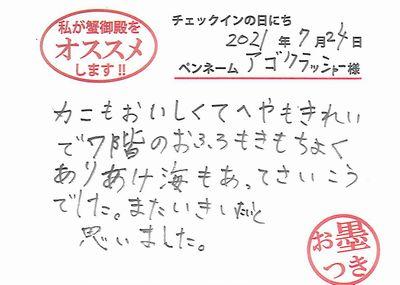 私が蟹御殿を
オススメ
します!!
チェックインの日にち
2021年7月24日
ペンネーム アゴクラッシャー様
カニもおいしくてへやもきれい
で7階のおふろもきもちよく
ありあけ海もあってさいこう
でした。またいきいたいと
思いました。
お墨
つき